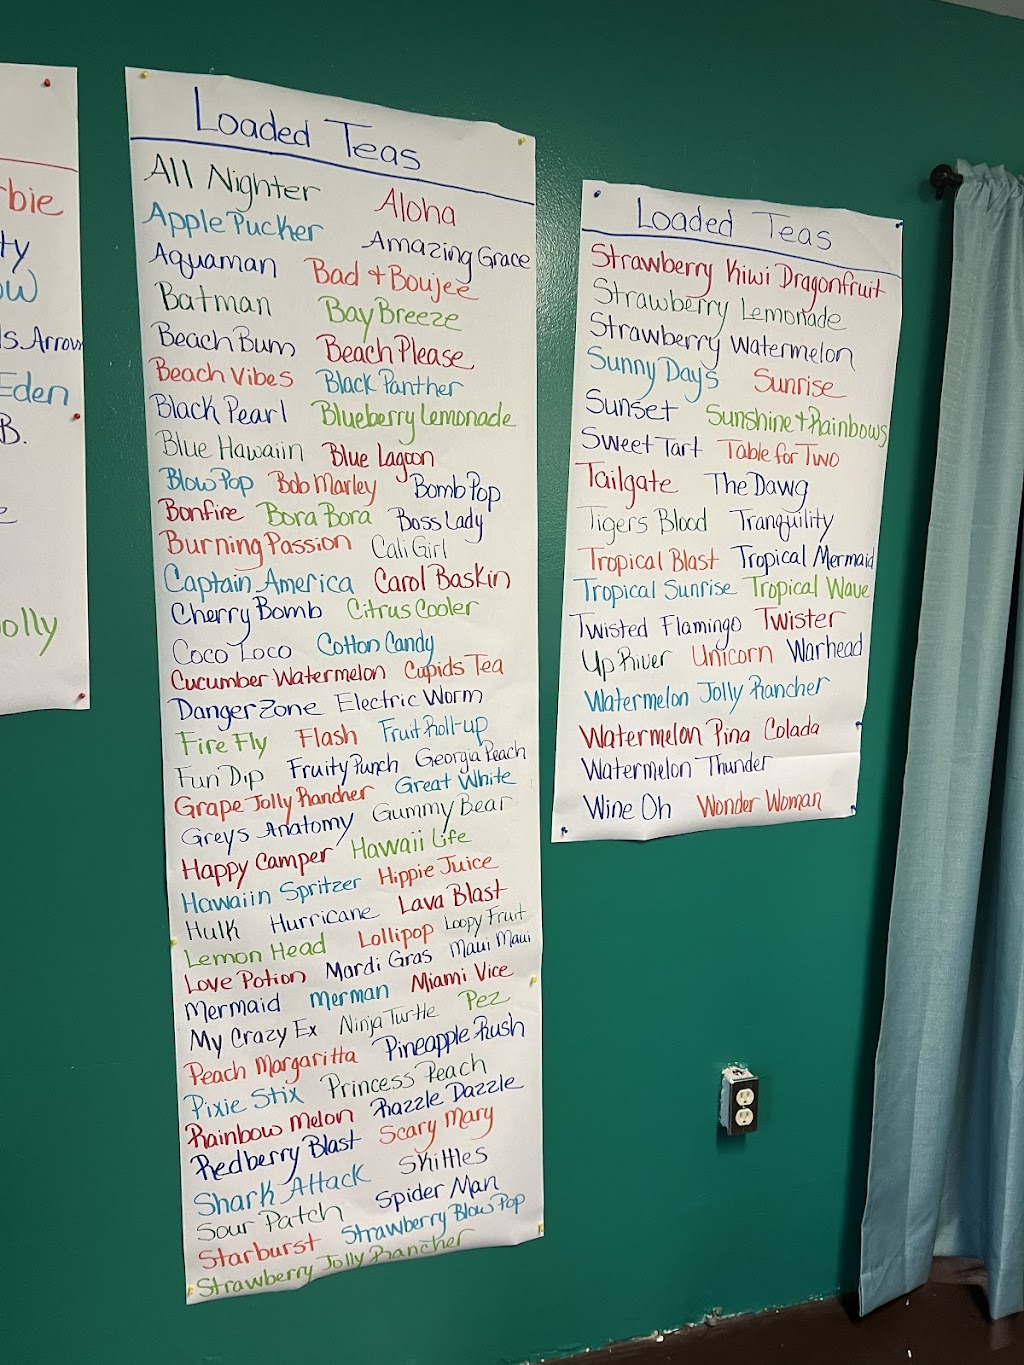 rbie
ty
ow
ls Arrow
Eden
B.
e
olly
Loaded Teas
All Nighter Aloha
Apple Pucker Amazing Grace
Aquaman Bad + Boujee
Batman Bay Breeze
Beach Bum Beach Please
Beach Vibes Black Panther
Black Pearl Blueberry Lemonade
Blue Hawaiin Blue Lagoon
Blow Pop Bob Marley Bomb Pop
Bonfire Bora Bora Boss Lady
Burning Passion Cali Girl
Captain America Carol Baskin
Cherry Bomb Citrus Cooler
Coco Loco Cotton Candy
Cucumber Watermelon Cupids Tea
Danger Zone Electric Worm
Fire Fly Flash Fruit Roll-up
Fun Dip Fruity Punch Georgia Peach
Grape Jolly Rancher Great White
Greys Anatomy Gummy Bear
Happy Camper Hawaii Life
Hawaiin Spritzer Hippie Juice
Hulk Hurricane Lava Blast
Lemon Head Lollipop Loopy Fruit
Love Potion Mardi Gras Maui Maui
Mermaid Merman Miami Vice
My Crazy Ex Ninja Turtle Pez
Peach Margaritta Pineapple Rush
Pixie Stix Princess Peach
Rainbow Melon Razzle Dazzle
Redberry Blast Scary Mary
Shark Attack Skittles
Sour Patch Spider Man
Starburst Strawberry Blow Pop
Strawberry Jolly Rancher
Loaded Teas
Strawberry Kiwi Dragonfruit
Strawberry Lemonade
Strawberry Watermelon
Sunny Days Sunrise
Sunset Sunshine + Rainbows
Sweet Tart Table for Two
Tailgate The Dawg
Tigers Blood Tranquility
Tropical Blast Tropical Mermaid
Tropical Sunrise Tropical Wave
Twisted Flamingo Twister
Up River Unicorn Warhead
Watermelon Jolly Rancher
Watermelon Pina Colada
Watermelon Thunder
Wine Oh Wonder Woman